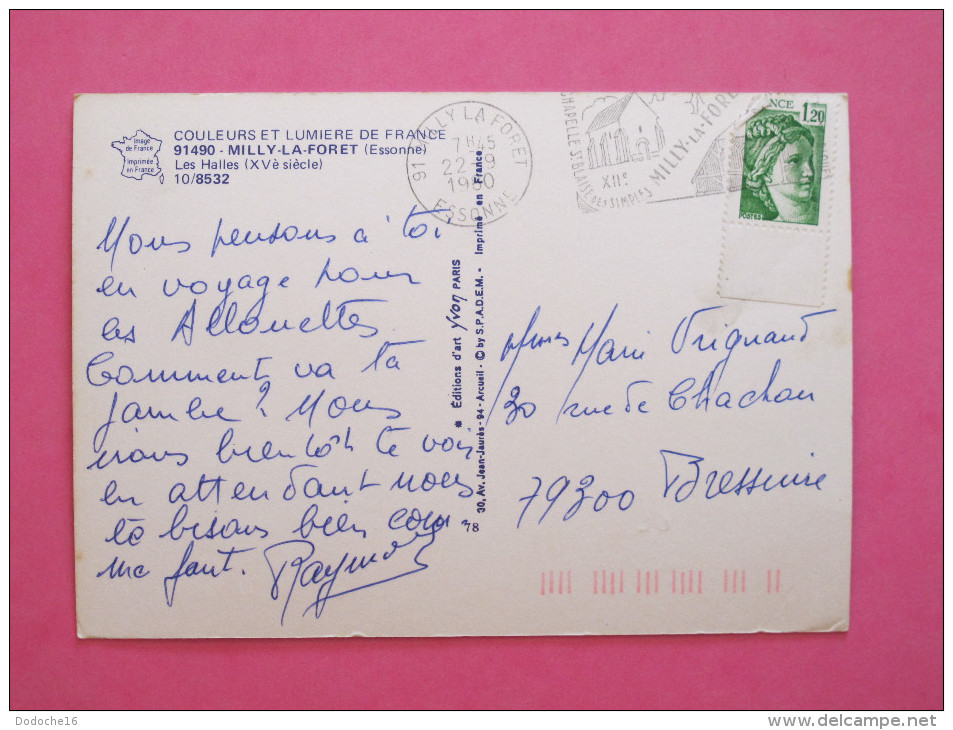 Image
de France
Imprimée
en France
COULEURS ET LUMIERE DE FRANCE
91490 - MILLY-LA-FORET (Essonne)
Les Halles (XVè siècle)
10/8532
91 MILLY LA FORET
7H45
22-9
1980
ESSONNE
CHAPELLE St BLAISE DES SIMPLES
XIIe
MILLY-LA-FORET
1,20
POSTES
Nous pensons à toi
en voyage pour
les Allouettes
Comment va ta
jambe? Nous
irons bientôt te voir
en attendant nous
te bisons bien com-
me faut. Raymond
* Éditions d'art Yvon PARIS
30, Av. Jean-Jaurès - 94 - Arcueil - © by S.P.A.D.E.M. - Imprimé en France
78
Marie Vrignaud
30 rue de Chachon
79300 Bressuire
Dodoche16
delcampe.net